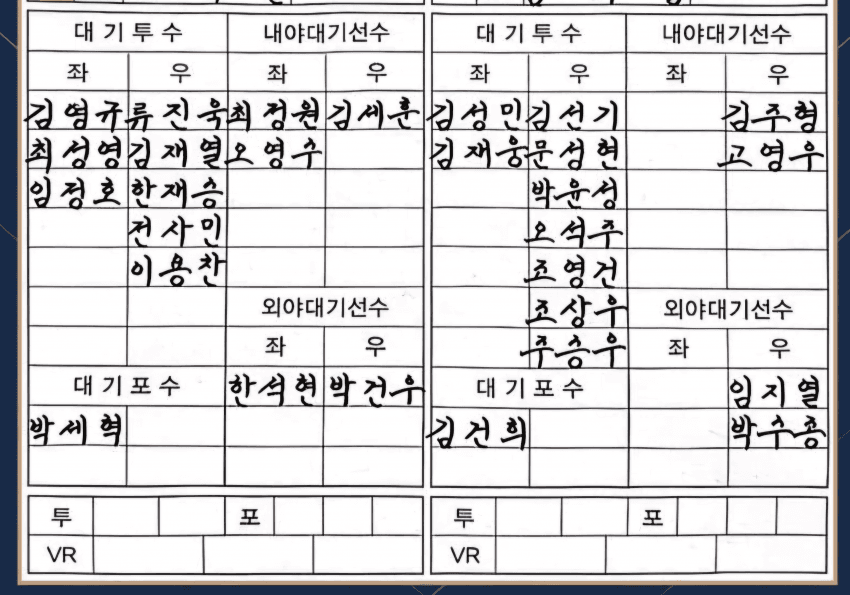 대기투수 내야대기선수
좌 우 좌 우
김영규 류진욱 최정원 김세훈
최성영 김재열 오영수
임정호 한재승
전사민
이용찬
외야대기선수
좌 우
대기포수 한석현 박건우
박세혁
투 포
VR
대기투수 내야대기선수
좌 우 좌 우
김성민 김선기 김주형
김재웅 문성현 고영우
박윤성
오석주
조영건
조상우 외야대기선수
주승우 좌 우
대기포수 임지열
김건희 박수종
투 포
VR